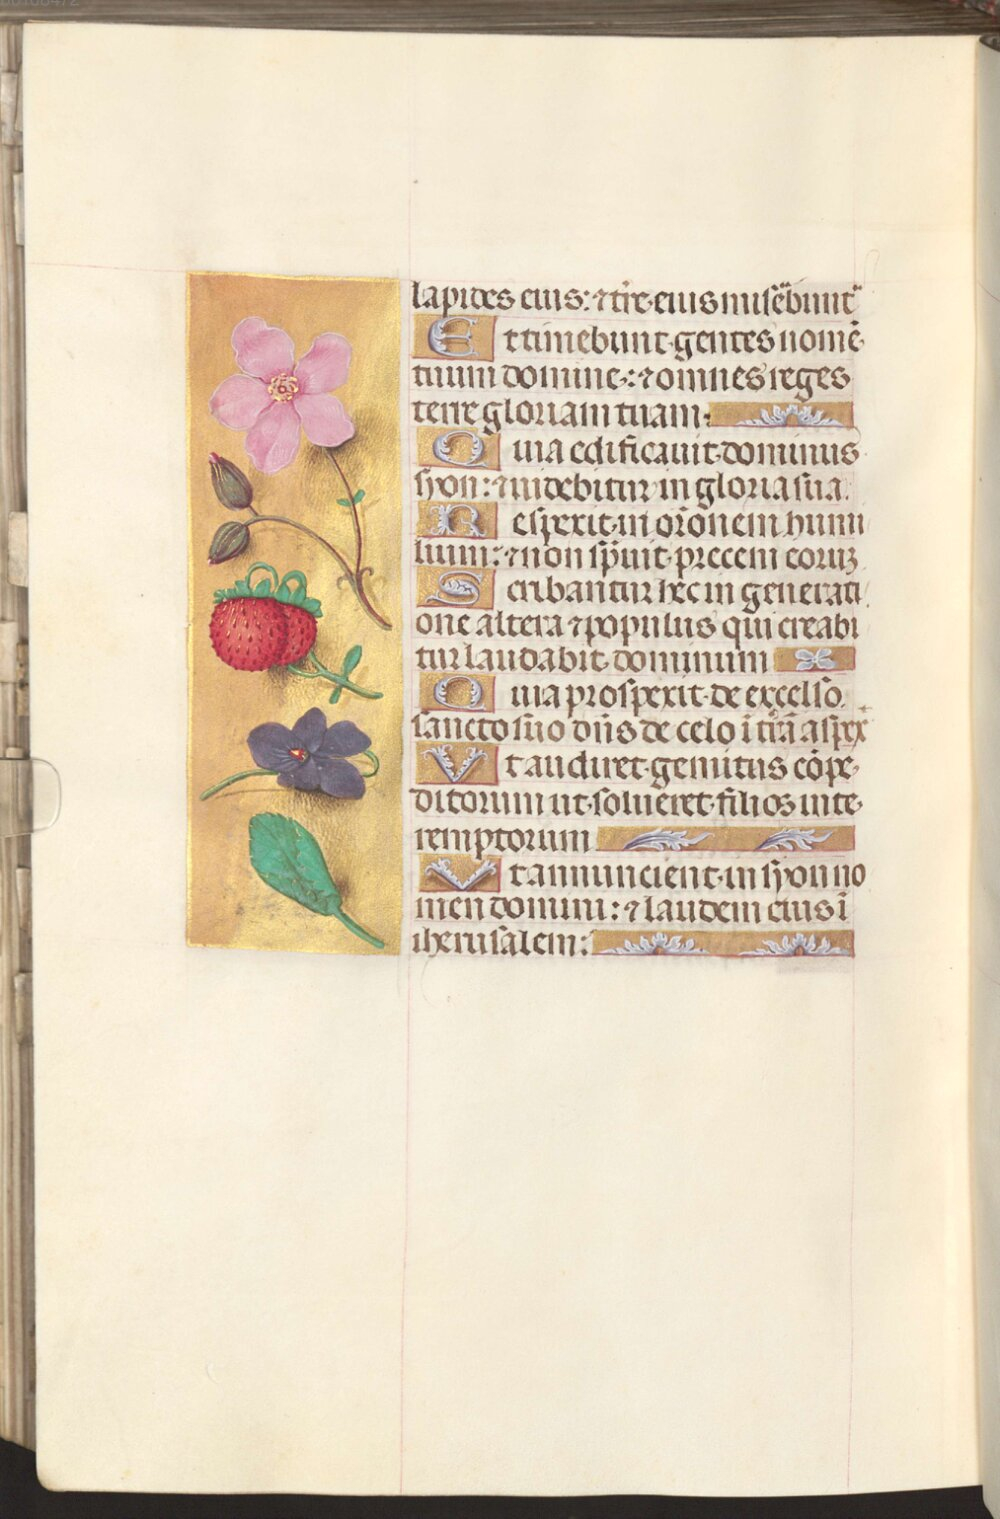 lapides eius: ⁊ tr̄e eius miseb̄unt̄
Et timebunt gentes nomē
tuum domine: ⁊ omnes reges
terre gloriam tuam:
Quia edificauit dominus
syon: ⁊ uidebitur in gloria sua.
Respexit in or̄onem humi
lium: ⁊ non sp̄uit precem eoruꝫ
Scribantur hec in generati
one altera ⁊ populus qui creabi
tur laudabit dominum
Quia prospexit de excelso
sancto suo dn̄s de celo ī trā aspex
Vt audiret gemitus cōpe
ditorum ut solueret filios inte
remptorum
Vt annuncient in syon no
men domini: ⁊ laudem eius ī
iherusalem: